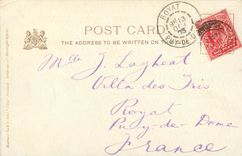 POST CARD
THE ADDRESS TO BE WRITTEN ON
ROYAT
PUY-DE-D
Mlle J. Lagheat
Villa des Iris
Royat
Puy-de-Dome
France